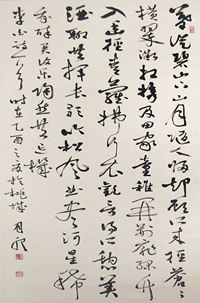 暮從碧山下山月隨人歸却顧所來徑蒼蒼
橫翠微相携及田家童稚開荆扉綠竹
入幽徑青蘿拂行衣歡言得所憩美
酒聊共揮長歌吟松風曲盡河星稀
我醉君復樂陶然共忘機
李白詩一首 時在乙酉之